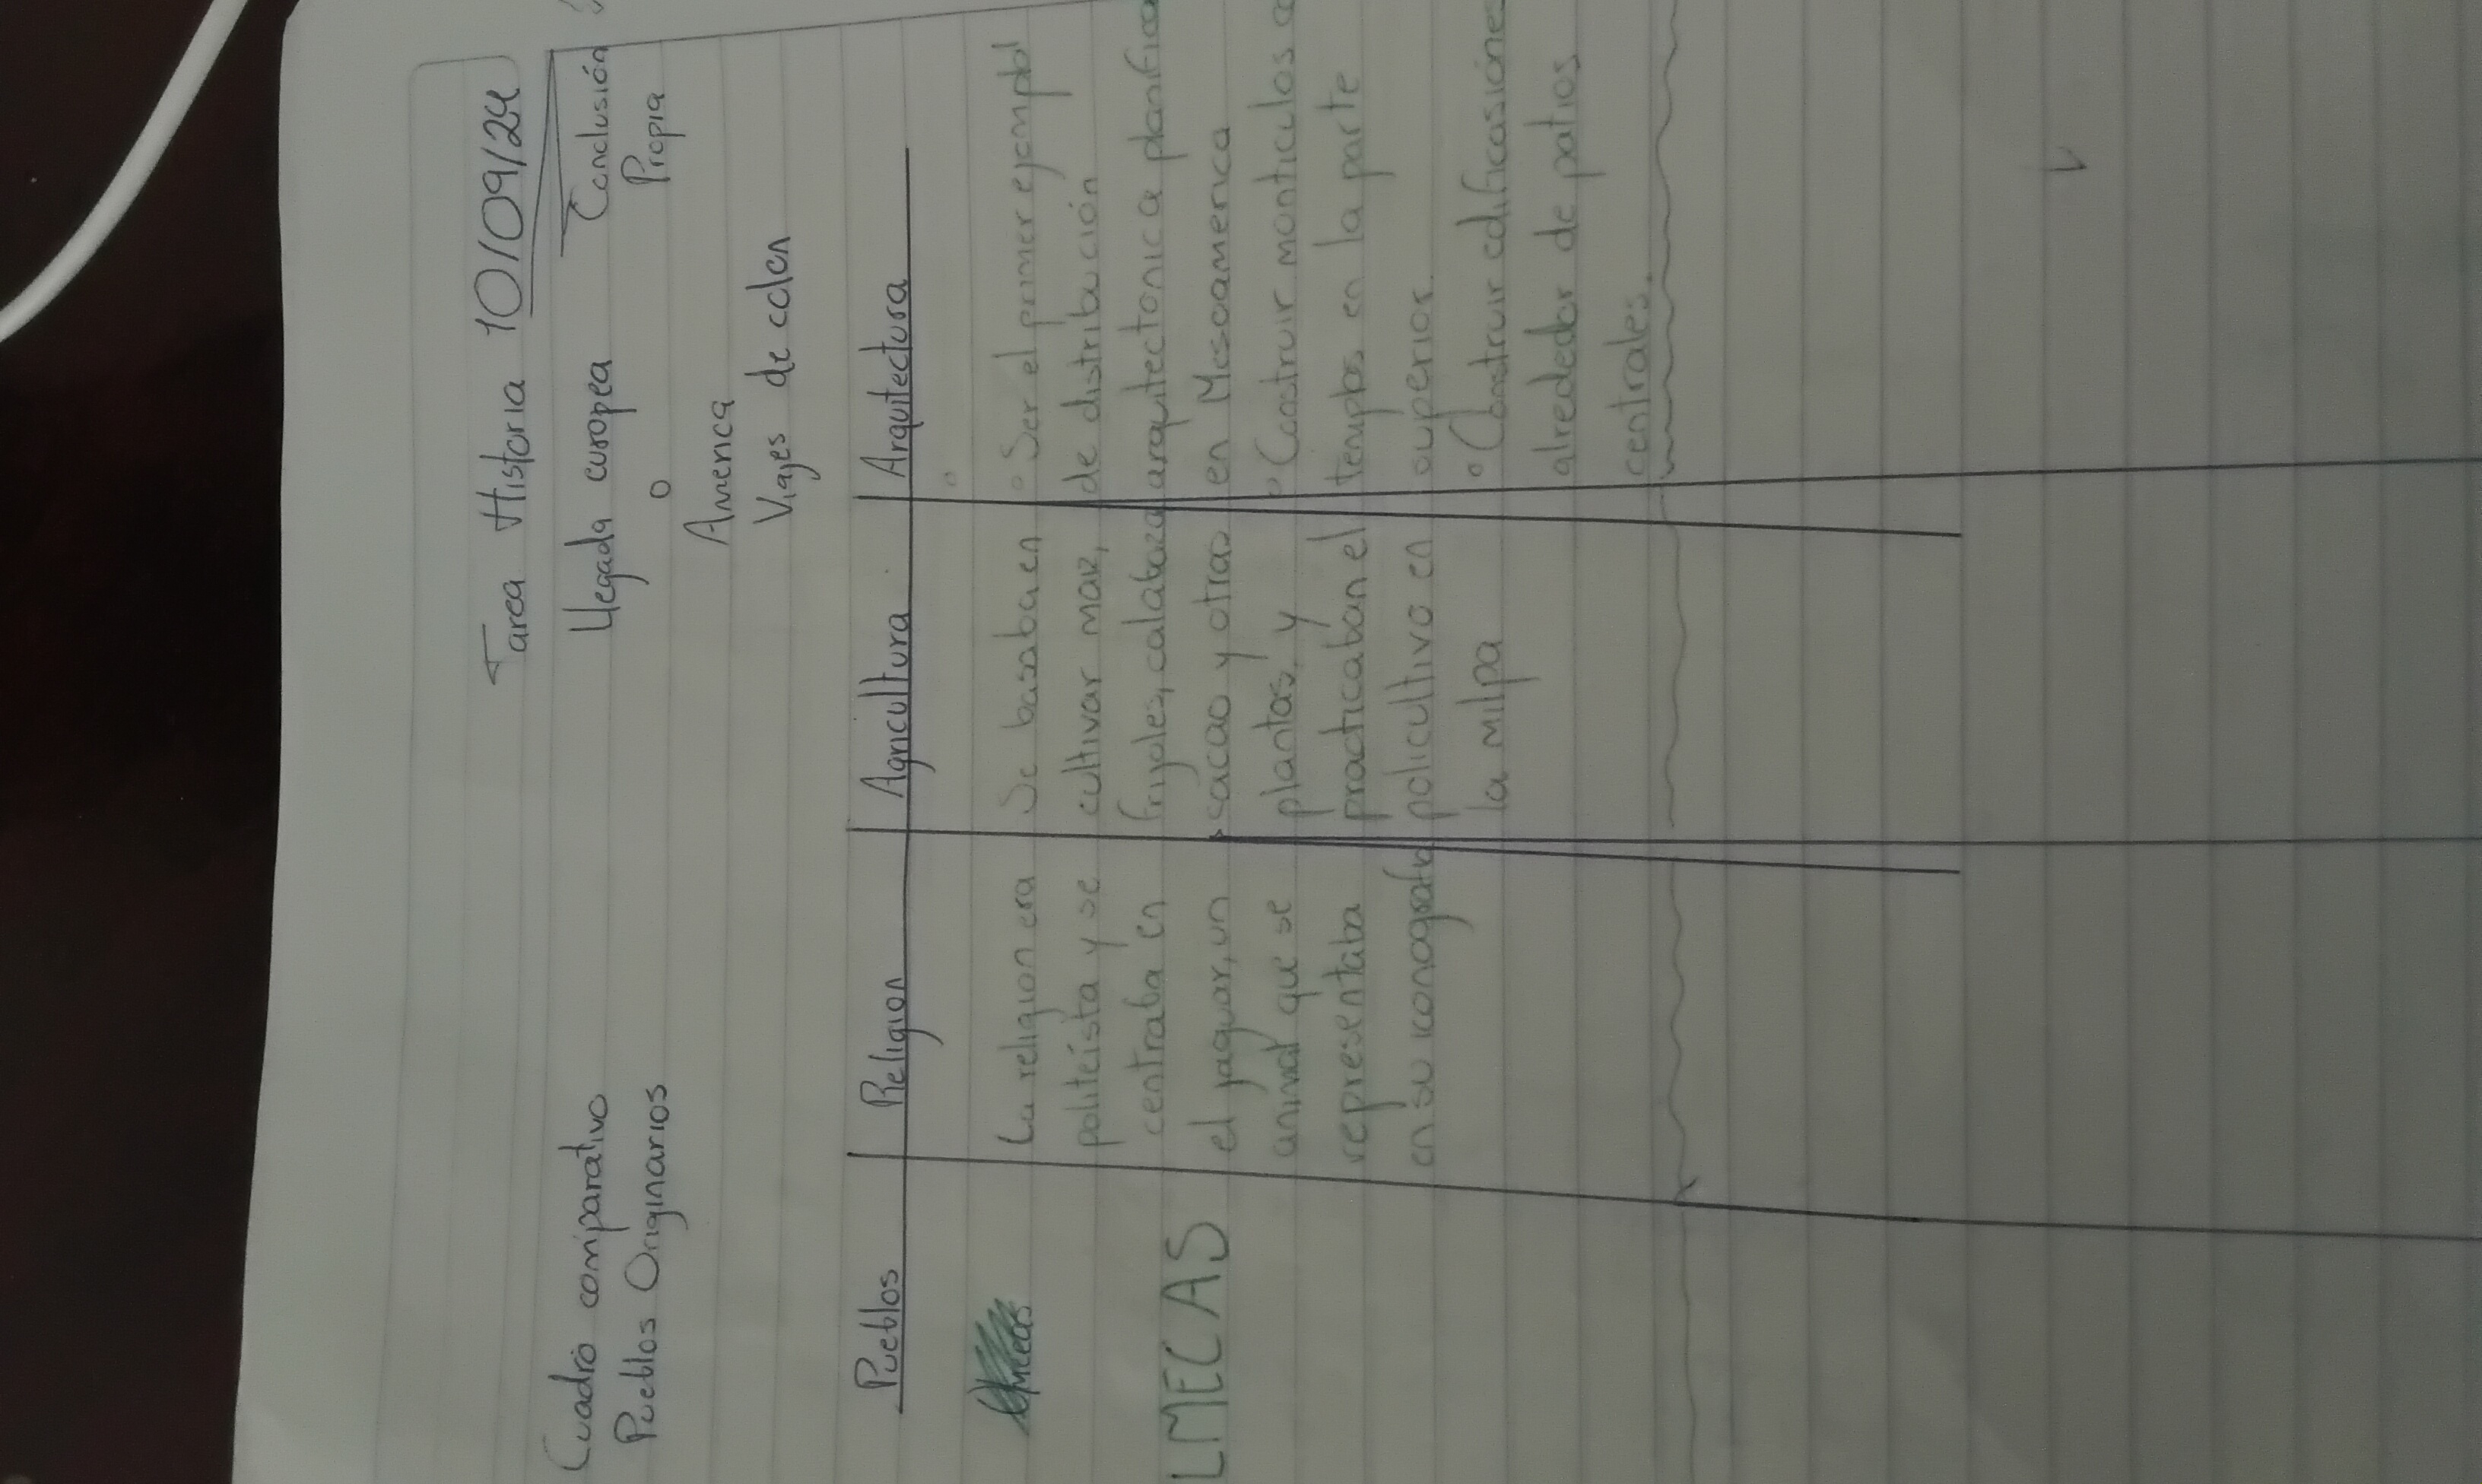 Tarea Historia 10/09/24
Cuadro comparativo
Pueblos Originarios
Llegada europea
o
America
Viajes de colon
Conclusión
Propia
Pueblos
Religion
Agricultura
Arquitectura
LMECAS
La religion era
politeísta y se
centraba en
el jaguar, un
animal que se
representaba
en su iconografia
Se basaba en
cultivar maiz,
frijoles, calabaza
cacao y otras
plantas, y
practicaban el
policultivo en
la milpa
° Ser el primer ejempl
de distribución
arquitectonica planifica
en Mesoamerica
° Construir monticulos c
templos en la parte
superior.
° Construir edificasiones
alrededor de patios
centrales.